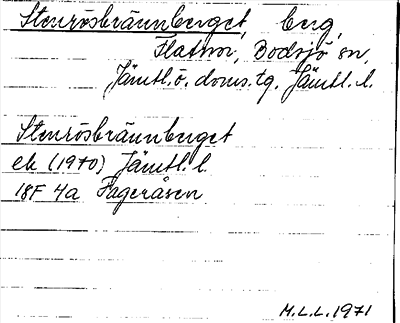 Stenrösbrännberget, berg,
Flatnor, Bodsjö sn,
Jämtl. ö. doms.tg. Jämtl. l.
Stenrösbrännberget
ek (1970) Jämtl. l.
18F 4a Fageråsen
M.L.L. 1971